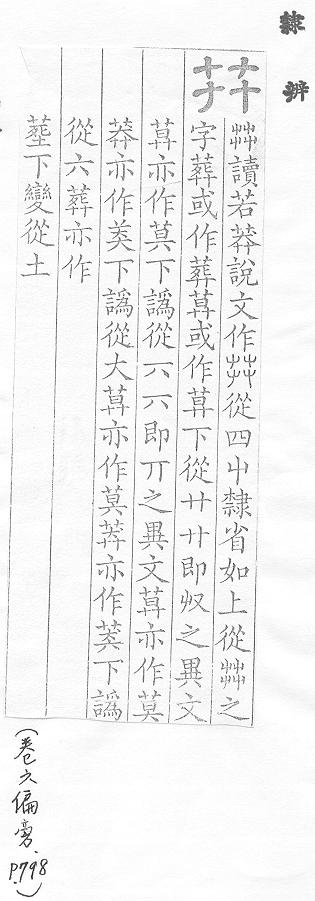 隸
辨
茻讀若莽說文作茻從四屮隸省如上從茻之
字葬或作葬莫或作茣下從廾廾即収之異文
莫亦作莫下譌從六六即丌之異文莫亦作莫
莽亦作美下譌從大莫亦作莫莽亦作莾下譌
從六葬亦作
塟下變從土
(卷六偏旁.
P.798)